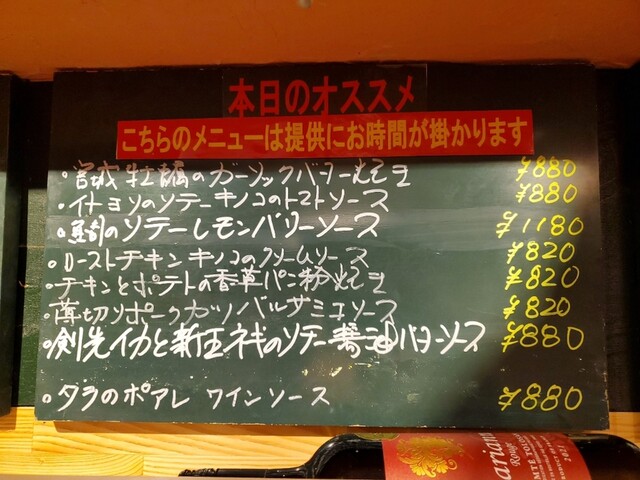 本日のオススメ
こちらのメニューは提供にお時間が掛かります
・宮城牡蠣のガーリックバター焼き ¥880
・イトヨリのソテーキノコのトマトソース ¥880
・のソテーレモンバターソース ¥1180
・ローストチキンキノコのクリームソース ¥820
・チキンとポテトの香草パン粉焼き ¥820
・薄切りポークカツバルサミコソース ¥820
・剣先イカと新玉ネギのソテー醤油バターソース ¥880
・タラのポアレ ワインソース ¥880
ariann
Rouge